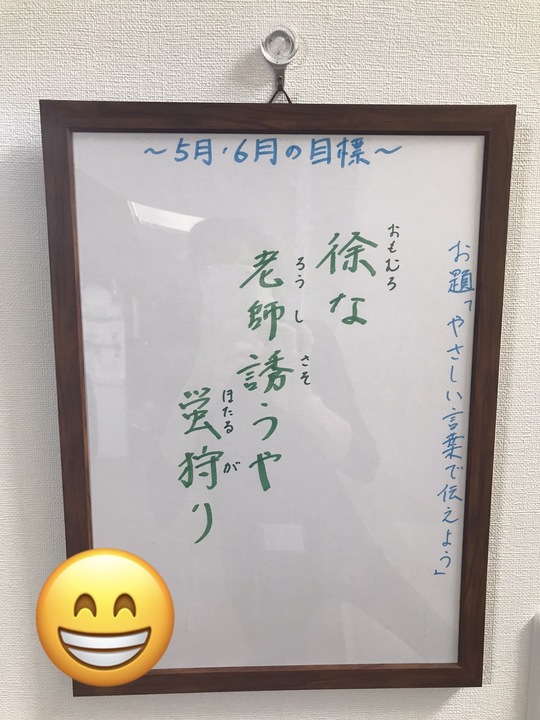 ～5月・6月の目標～
お題「やさしい言葉で伝えよう」
おもむろ
徐な
ろうし さそ
老師誘うや
ほたる が
蛍狩り